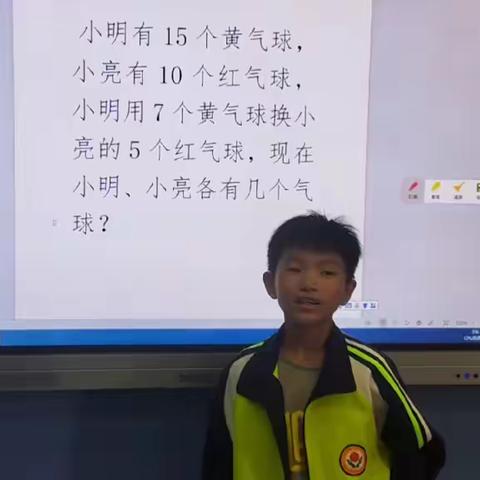 小明有 15 个黄气球，
小亮有 10 个红气球，
小明用 7 个黄气球换小
亮的 5 个红气球，现在
小明、小亮各有几个气
球？